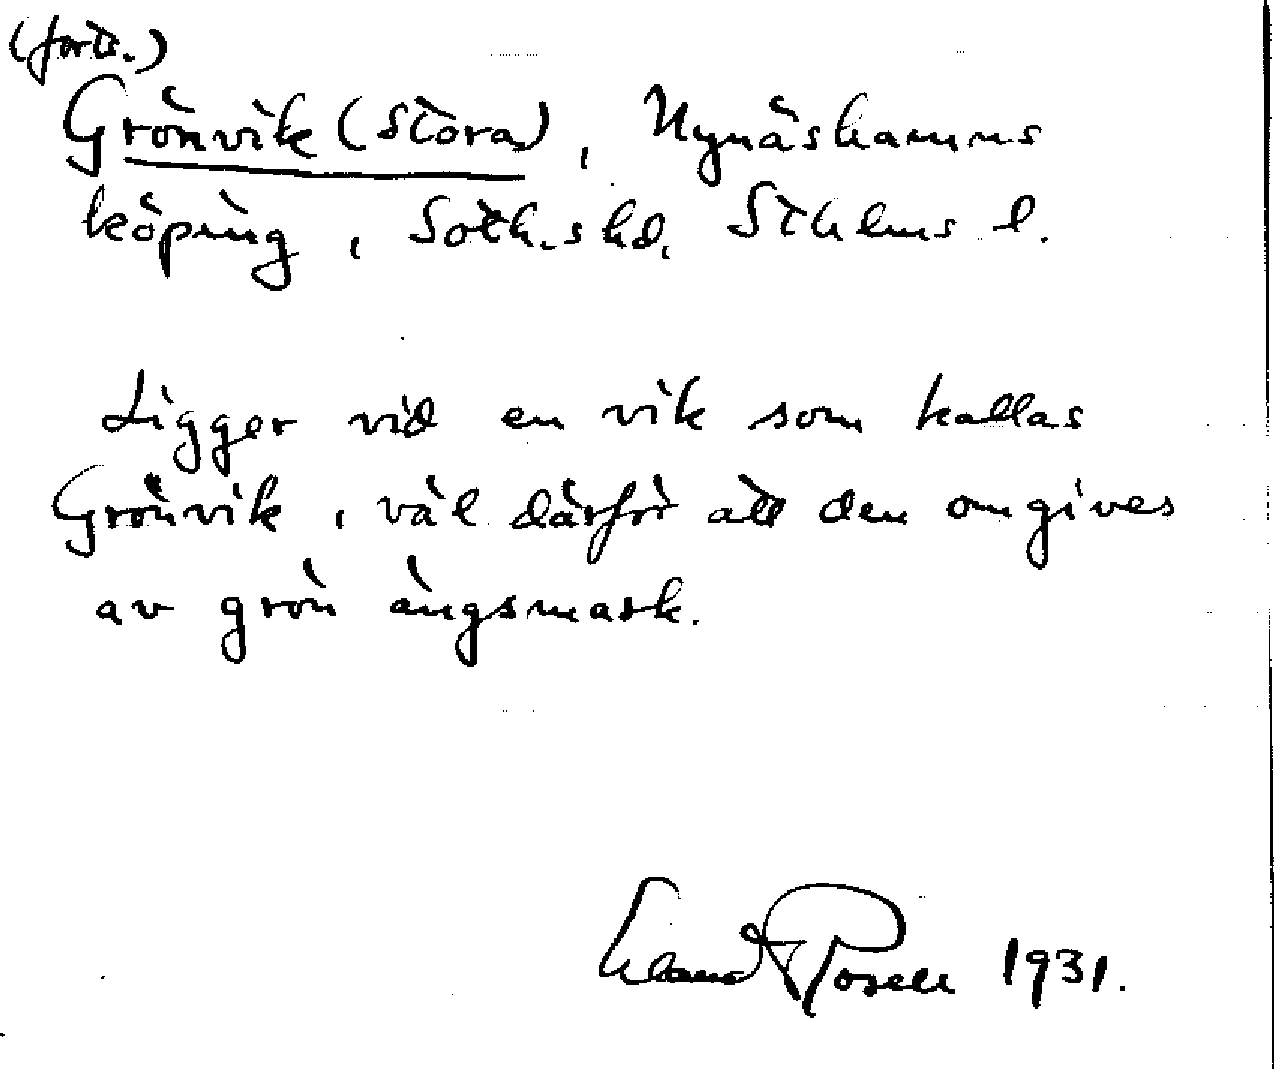 (forts.)
Grönvik (Stora), Nynäshamns
köping, Soth.s hd. Sthlms l.
Ligger vid en vik som kallas
Grönvik, väl därför att den omgives
av grön ängsmark.
1931.